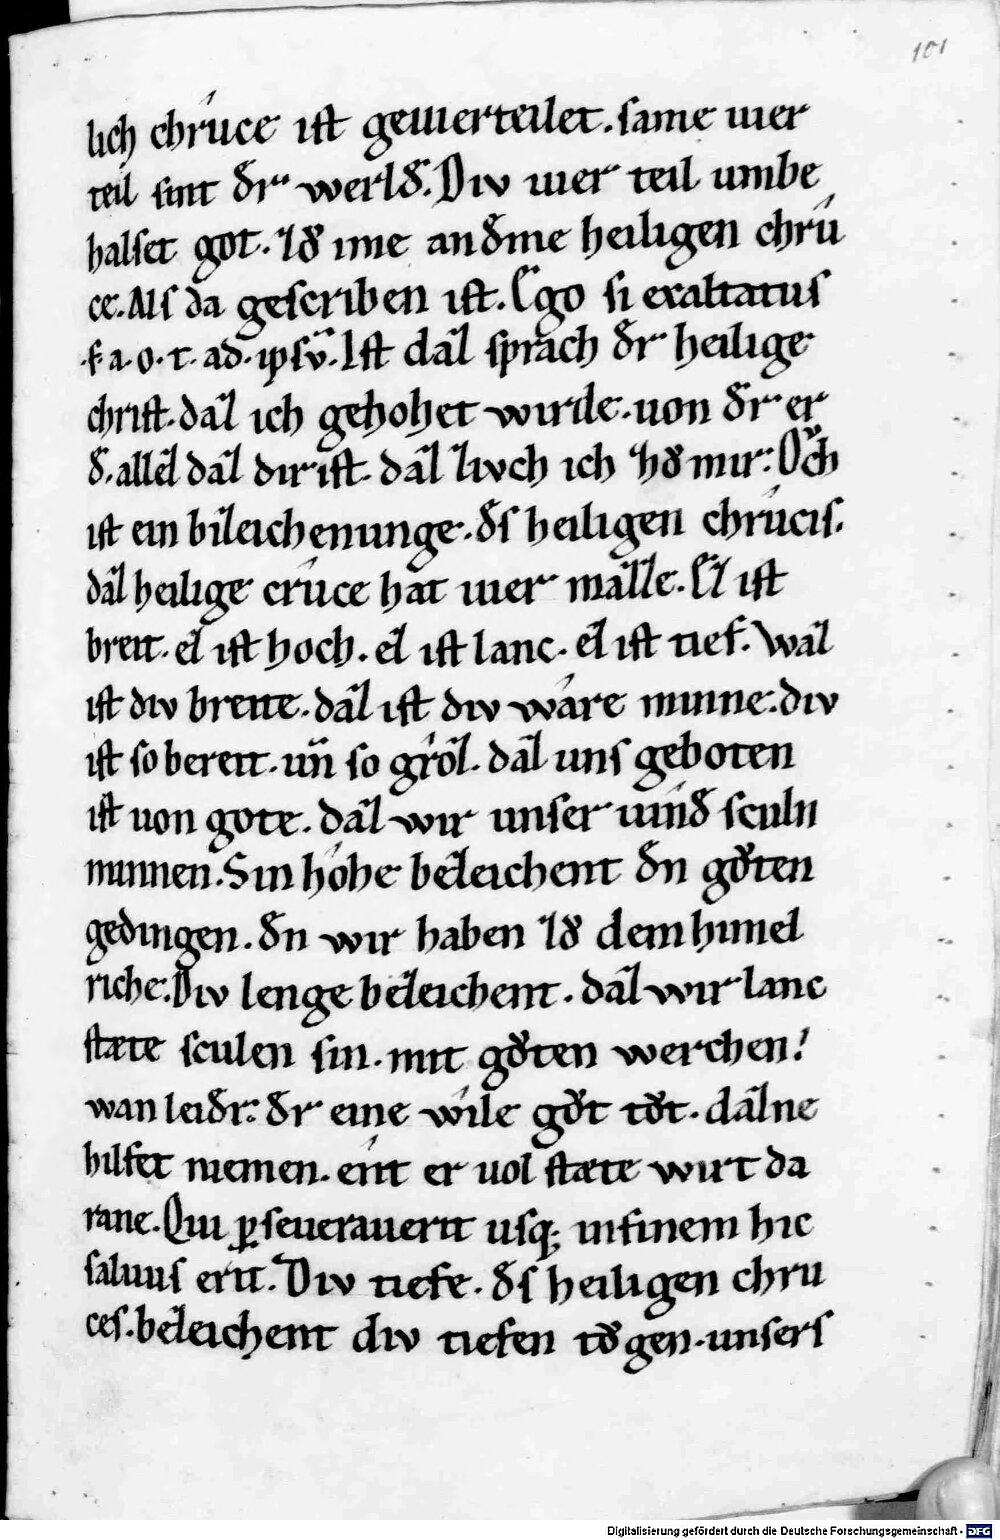 101
lich chrûce iſt geuierteilet. ſame uier
teil ſint đr werlđ. Div uier teil umbe
halſet got. zỏ ime anđme heiligen chrû
ce. Als da geſcriben iſt. Ego ſi exaltatus
.f. a. o. t. ad. ipſū. Iſt dāz ſprach đr heilige
chriſt. dāz ich gehohet wirde. uon đr er
đ. allēz dāz dir iſt. dāz ziuch ich zỏ mir. Ỏch
iſt ein bizeichenunge. đs heiligen chrûcis.
dāz heilige crûce hat uier māzze. Ez iſt
breit. ez iſt hoch. ez iſt lanc. ez iſt tief. Waz
iſt div breite. dāz iſt div wâre minne. div
iſt ſo bereit. uñ ſo grôz. dāz uns geboten
iſt uon gote. dāz wir unſer uînđ ſculn
minnen. Sin hôhe bezeichent đn gỏten
gedingen. đn wir haben zỏ dem himel
riche. Div lenge bezeichent. dāz wir lanc
ſtæte ſculen ſin. mit gỏten werchen!
wan leiđr. đr eine wîle gỏt tỏt. dāz ne
hilfet niemen. ênt er uol ſtæte wirt da
rane. Qui ꝑſeuerauerit uſq; infinem hic
ſaluus erit. Div tiefe. đs heiligen chru
ces. bezeichent div tiefen tỏgen. unſers
Digitalisierung gefördert durch die Deutsche Forschungsgemeinschaft - DFG